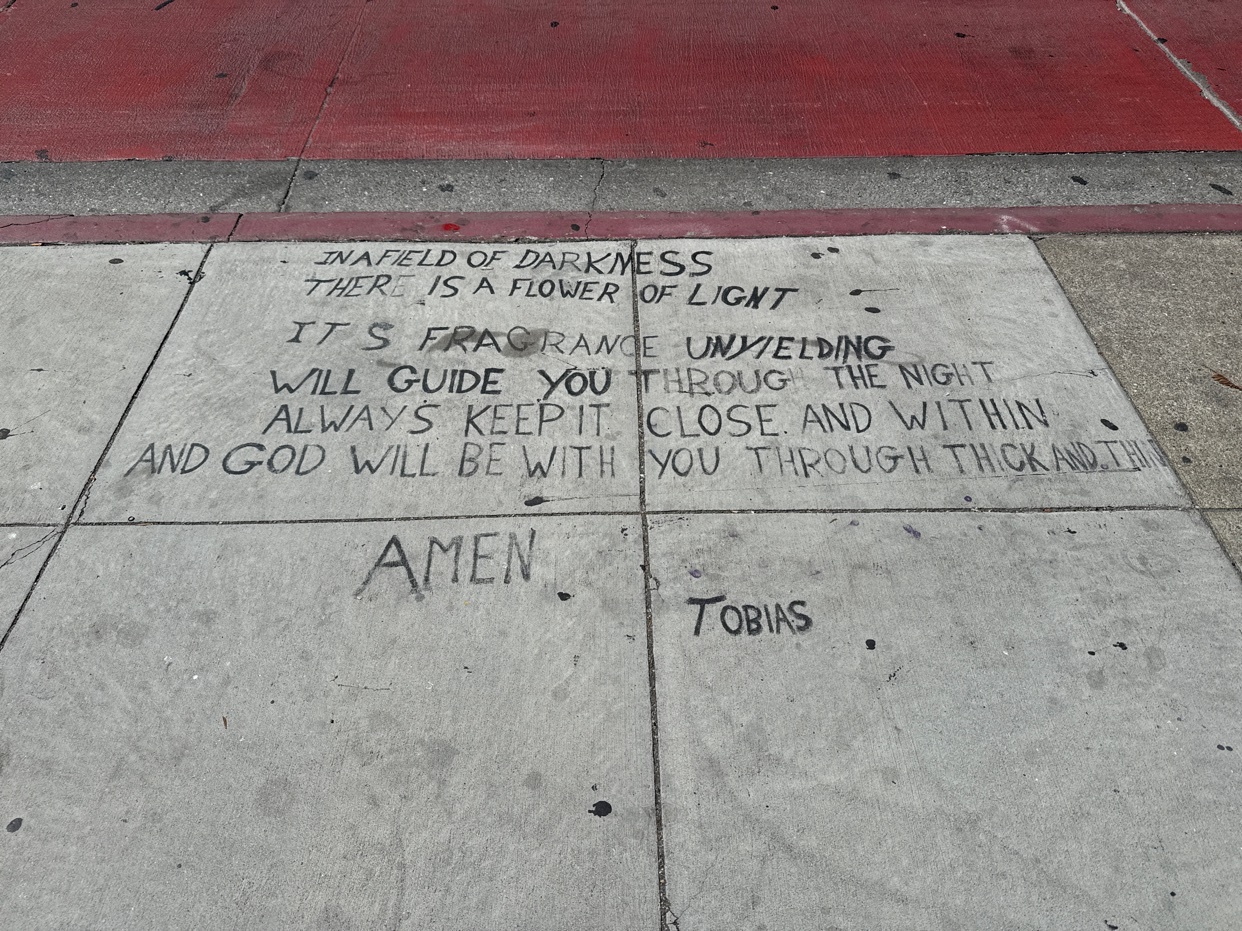 IN A FIELD OF DARKNESS
THERE IS A FLOWER OF LIGHT
IT S FRAGRANCE UNYIELDING
WILL GUIDE YOU THROUGH THE NIGHT
ALWAYS KEEP IT CLOSE AND WITHIN
AND GOD WILL BE WITH YOU THROUGH THICK AND THIN
AMEN
TOBIAS